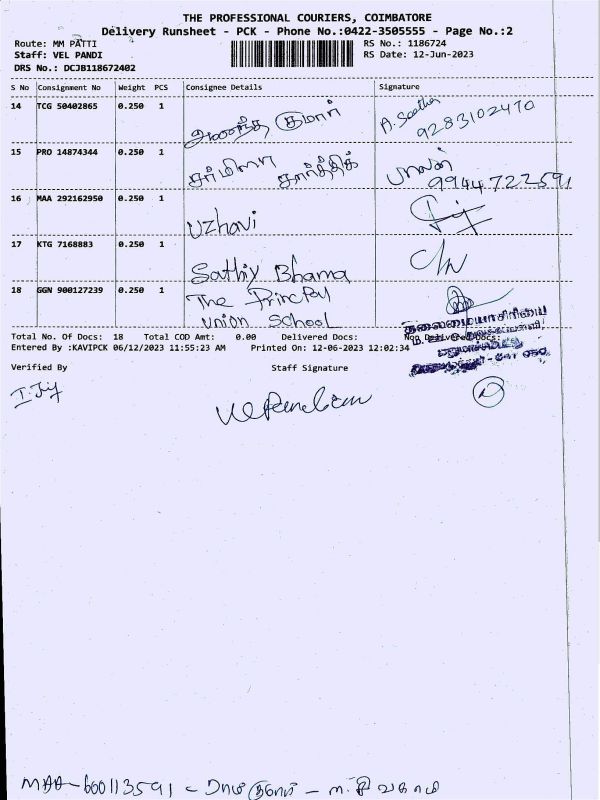 THE PROFESSIONAL COURIERS, COIMBATORE
Delivery Runsheet - PCK - Phone No.:0422-3505555 - Page No.:2
Route: MM PATTI
RS No.: 1186724
Staff: VEL PANDI
RS Date: 12-Jun-2023
DRS No.: DCJB118672402
S No Consignment No Weight PCS Consignee Details Signature
14 TCG 50402865 0.250 1 ஆனந்த குமார் A. Seetha
9283102470
15 PRO 14874344 0.250 1 சர்மிளா கார்த்திக் பாலன்
9944722591
16 MAA 292162950 0.250 1 Uzhavi
17 KTG 7168883 0.250 1 Sathiy Bhama
18 GGN 900127239 0.250 1 The Principal
Union School
Total No. Of Docs: 18 Total COD Amt: 0.00 Delivered Docs: Non Delivered Docs:
தலைமையாசிரியை
Entered By :KAVIPCK 06/12/2023 11:55:23 AM Printed On: 12-06-2023 12:02:34
Verified By Staff Signature
MAA-600113591 -